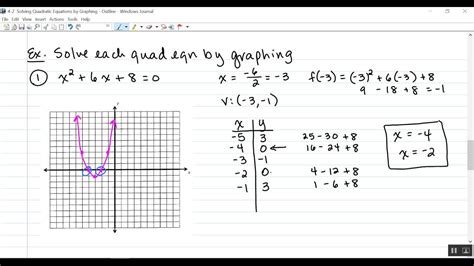 4-2 Solving Quadratic Equations by Graphing - Outline - Windows Journal
File Edit View Insert Actions Tools Help
Ex. Solve each quad eqn by graphing
① x² + 6x + 8 = 0
x = -6/2 = -3
f(-3) = (-3)² + 6(-3) + 8
9 - 18 + 8 = -1
v: (-3, -1)
x y
-5 3 25 - 30 + 8
-4 0 ← 16 - 24 + 8
-3 -1
-2 0 4 - 12 + 8
-1 3 1 - 6 + 8
x = -4
x = -2